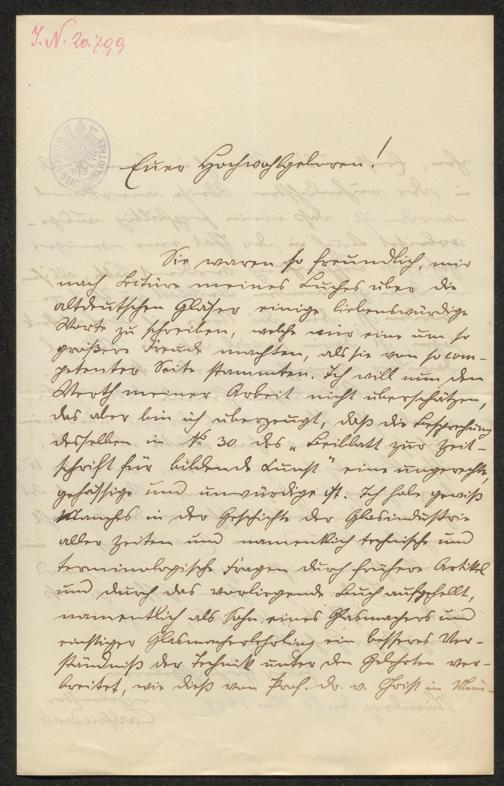 J. N. 20.799
Euer Hochwohlgeboren!
Sie waren so freundlich, mir
nach Lektüre meines Buches über die
altdeutschen Gläser einige liebenswürdige
Worte zu schreiben, welche mir eine um so
größere Freude machten, als sie von so com-
petenter Seite stammten. Ich will nun den
Werth meiner Arbeit nicht überschätzen,
das aber bin ich überzeugt, daß die Besprechung
desselben in No 30 des „Beiblatt zur Zeit-
schrift für bildende Kunst" eine ungerechte,
gehässige und unwürdige ist. Ich habe gewiß
Manches in der Geschichte der Glasindustrie
aller Zeiten und namentlich technische und
terminologische Fragen durch frühere Artikel
und durch das vorliegende Buch aufgehellt,
namentlich als Sohn eines Glasmachers und
einstiger Glasmacherlehrling ein besseres Ver-
ständniß der Technik unter den Gelehrten ver-
breitet, wie dieß von Prof. Dr. v. Christ in Mün-